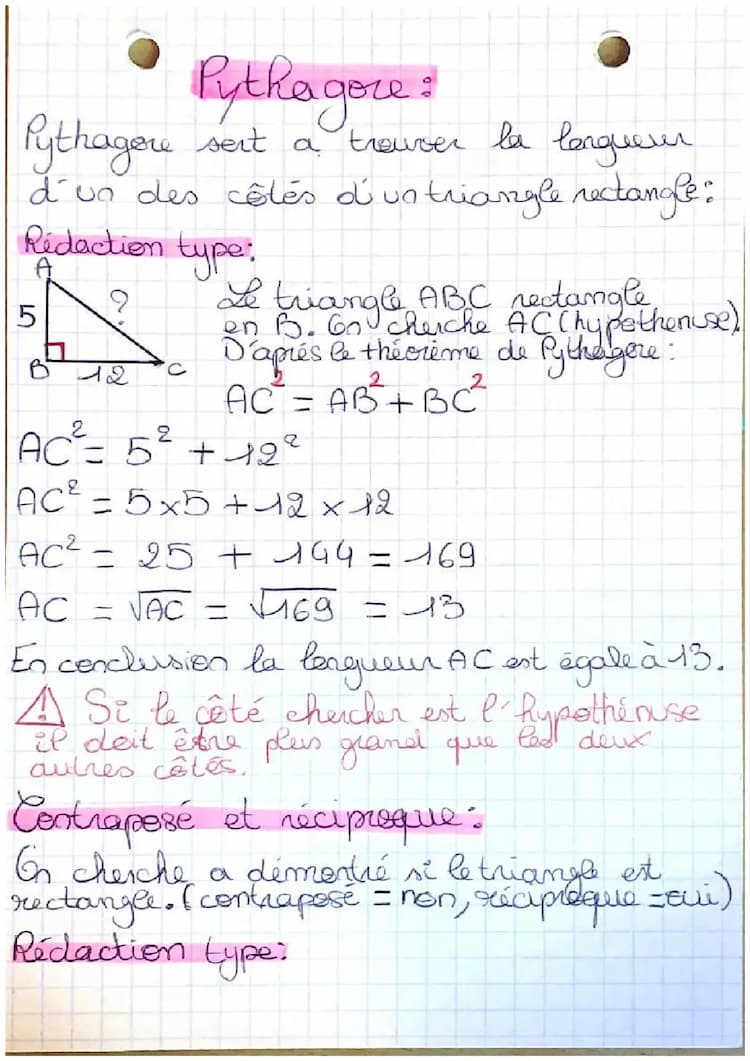 Pythagore :
Pythagore sert a trouver la longueur
d'un des côtés d'un triangle rectangle :
Rédaction type :
A
5
?
B
12
C
Le triangle ABC rectangle
en B. On cherche AC (hypothenuse).
D'aprés le théorème de Pythagore :
AC² = AB² + BC²
AC² = 5² + 12²
AC² = 5 × 5 + 12 × 12
AC² = 25 + 144 = 169
AC = √AC = √169 = 13
En conclusion la longueur AC est égale à 13.
⚠ Si le côté chercher est l'hypothénuse
il doit être plus grand que les deux
autres côtés.
Contraposé et réciproque :
On cherche a démontré si le triangle est
rectangle. (contraposé = non, réciproque = oui)
Rédaction type :